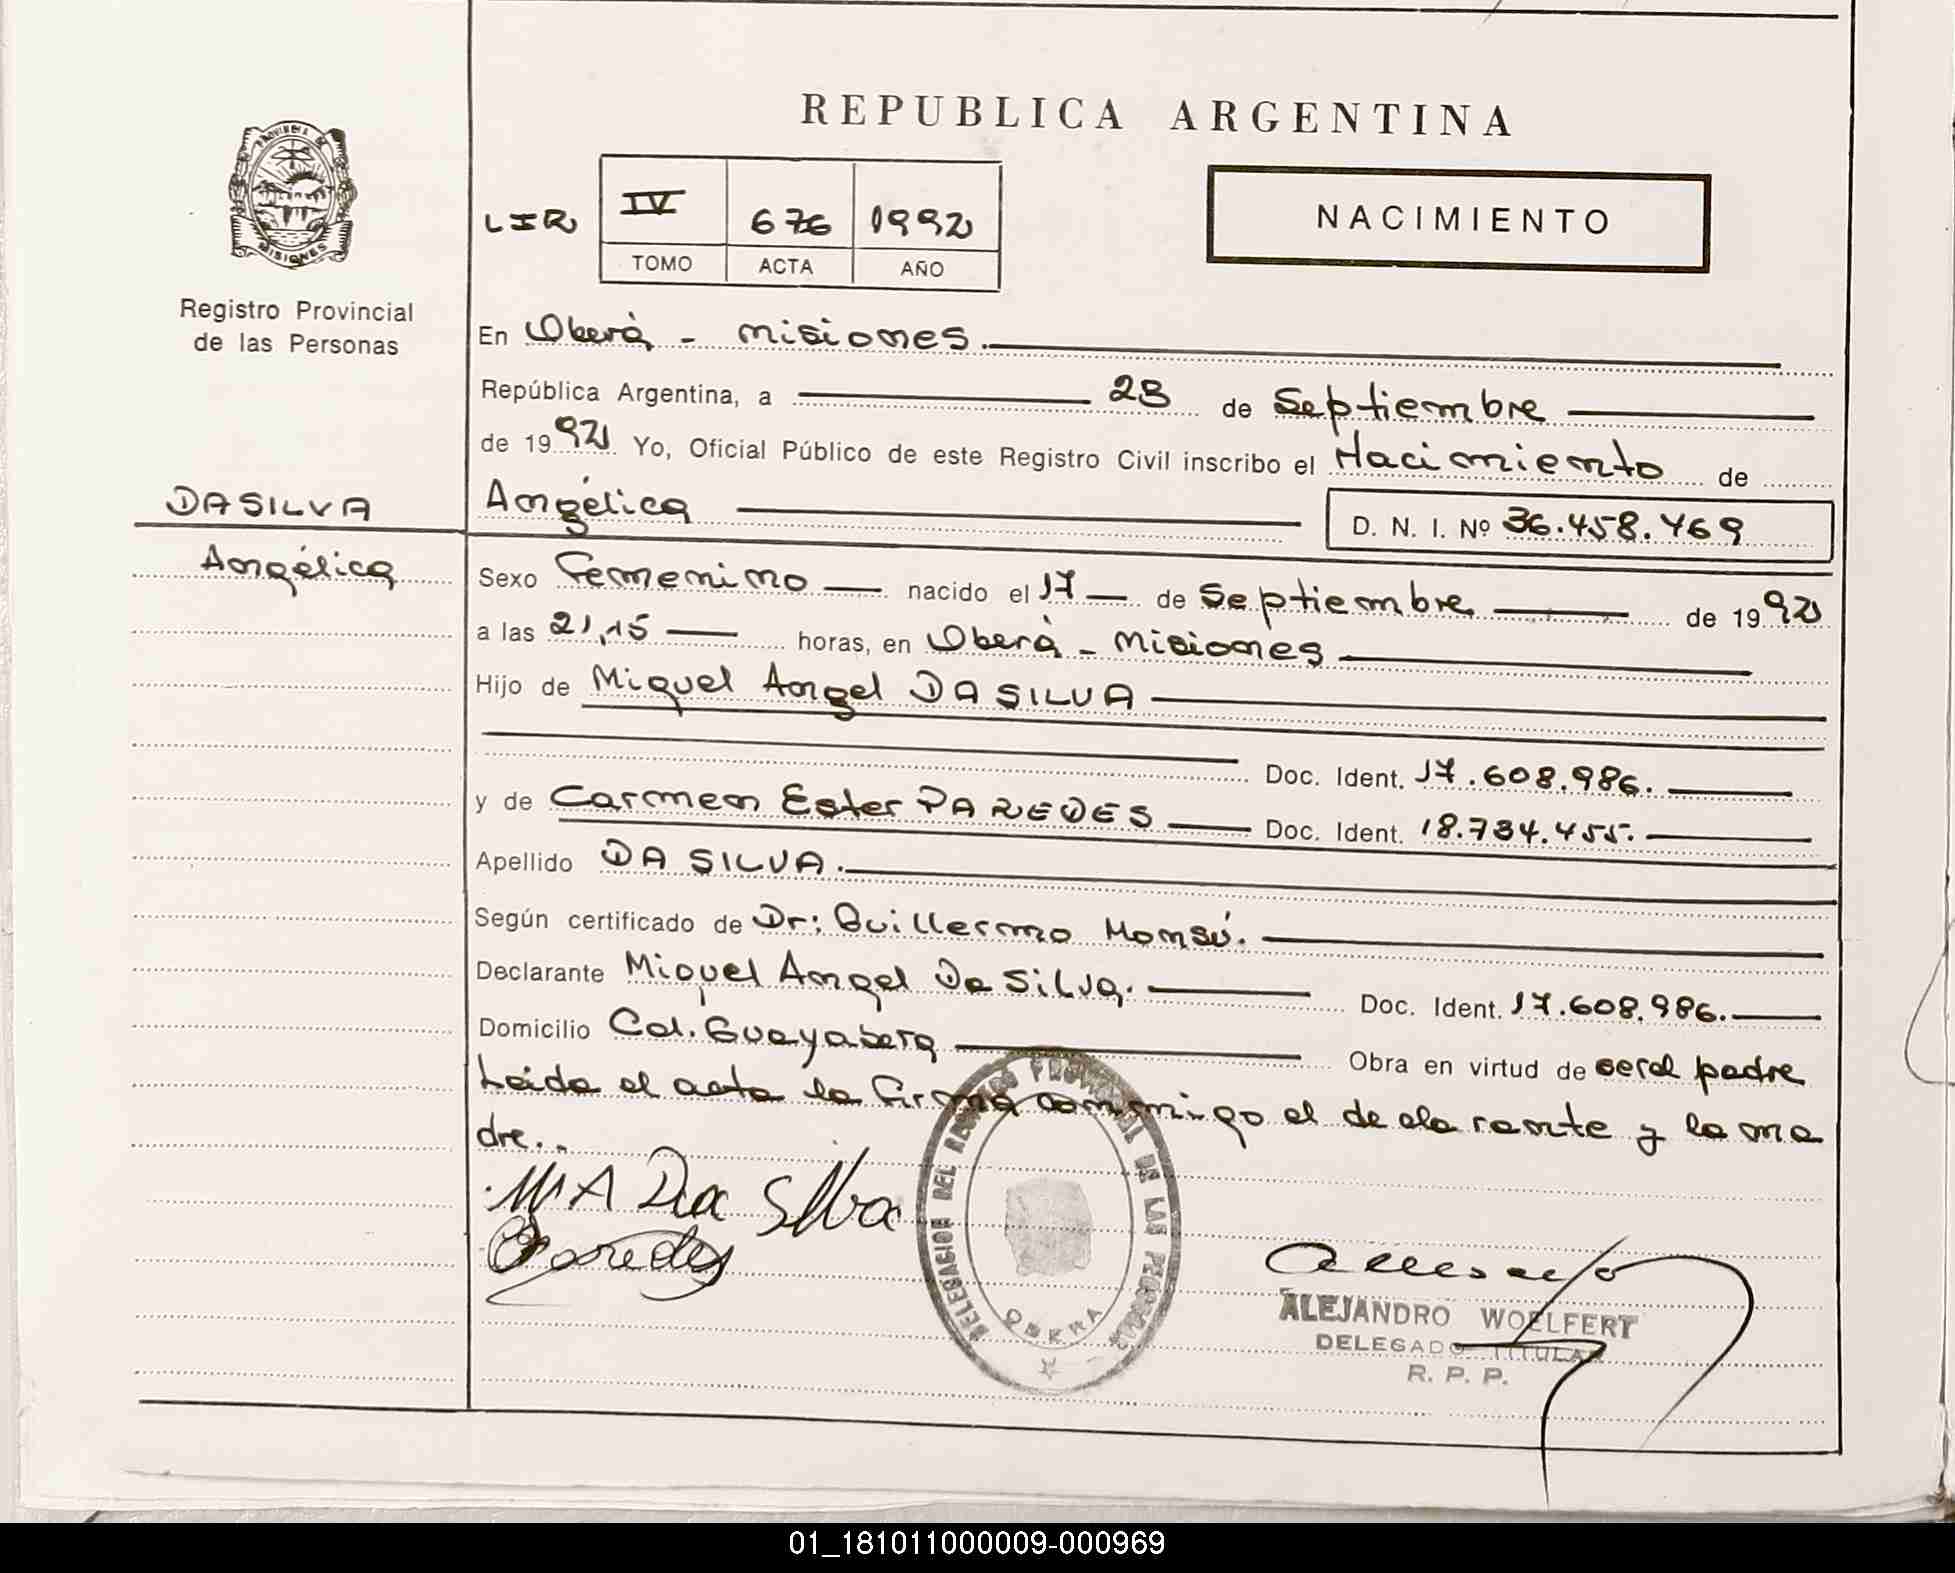 REPUBLICA ARGENTINA
PROVINCIA DE
MISIONES
Registro Provincial
de las Personas
LIR IV 676 1992
TOMO ACTA AÑO
NACIMIENTO
En Oberá - misiones.
República Argentina, a 23 de Septiembre
de 1992 Yo, Oficial Público de este Registro Civil inscribo el Nacimiento de
DA SILVA
Angélica
Angélica D. N. I. Nº 36.458.469
Sexo Femenino nacido el 17 de Septiembre de 1992
a las 21,15 horas, en Oberá - Misiones
Hijo de Miguel Angel DA SILVA
Doc. Ident. 17.608.986.
y de Carmen Ester PAREDES Doc. Ident. 18.734.455.
Apellido DA SILVA.
Según certificado de Dr: Guillermo
Declarante Miguel Angel Da Silva. Doc. Ident. 17.608.986.
Domicilio Col. Guayabera Obra en virtud de ser el padre
Leida el acta la firma conmigo el declarante y la ma
dre..
M A Da Silva
Paredes
DELEGACION DEL REGISTRO PROVINCIAL DE LAS PERSONAS
OBERA
ALEJANDRO WOELFERT
DELEGADO TITULAR
R. P. P.
01_181011000009-000969